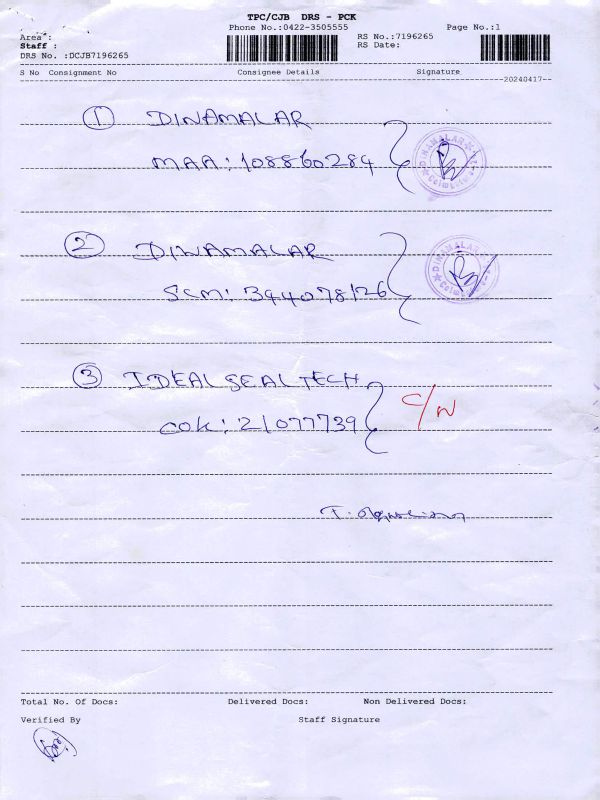 TPC/CJB DRS - PCK
Phone No.:0422-3505555 Page No.:1
Area :
RS No.:7196265
Staff :
RS Date:
DRS No. :DCJB7196265
S No Consignment No Consignee Details Signature
20240417--
1 DINAMALAR
MAA: 108860284
DINAMALAR
2 DINAMALAR
SCM: 344078126
DINAMALAR
3 IDEAL SEAL TECH
COK: 21077739
C/N
Total No. Of Docs: Delivered Docs: Non Delivered Docs:
Verified By Staff Signature